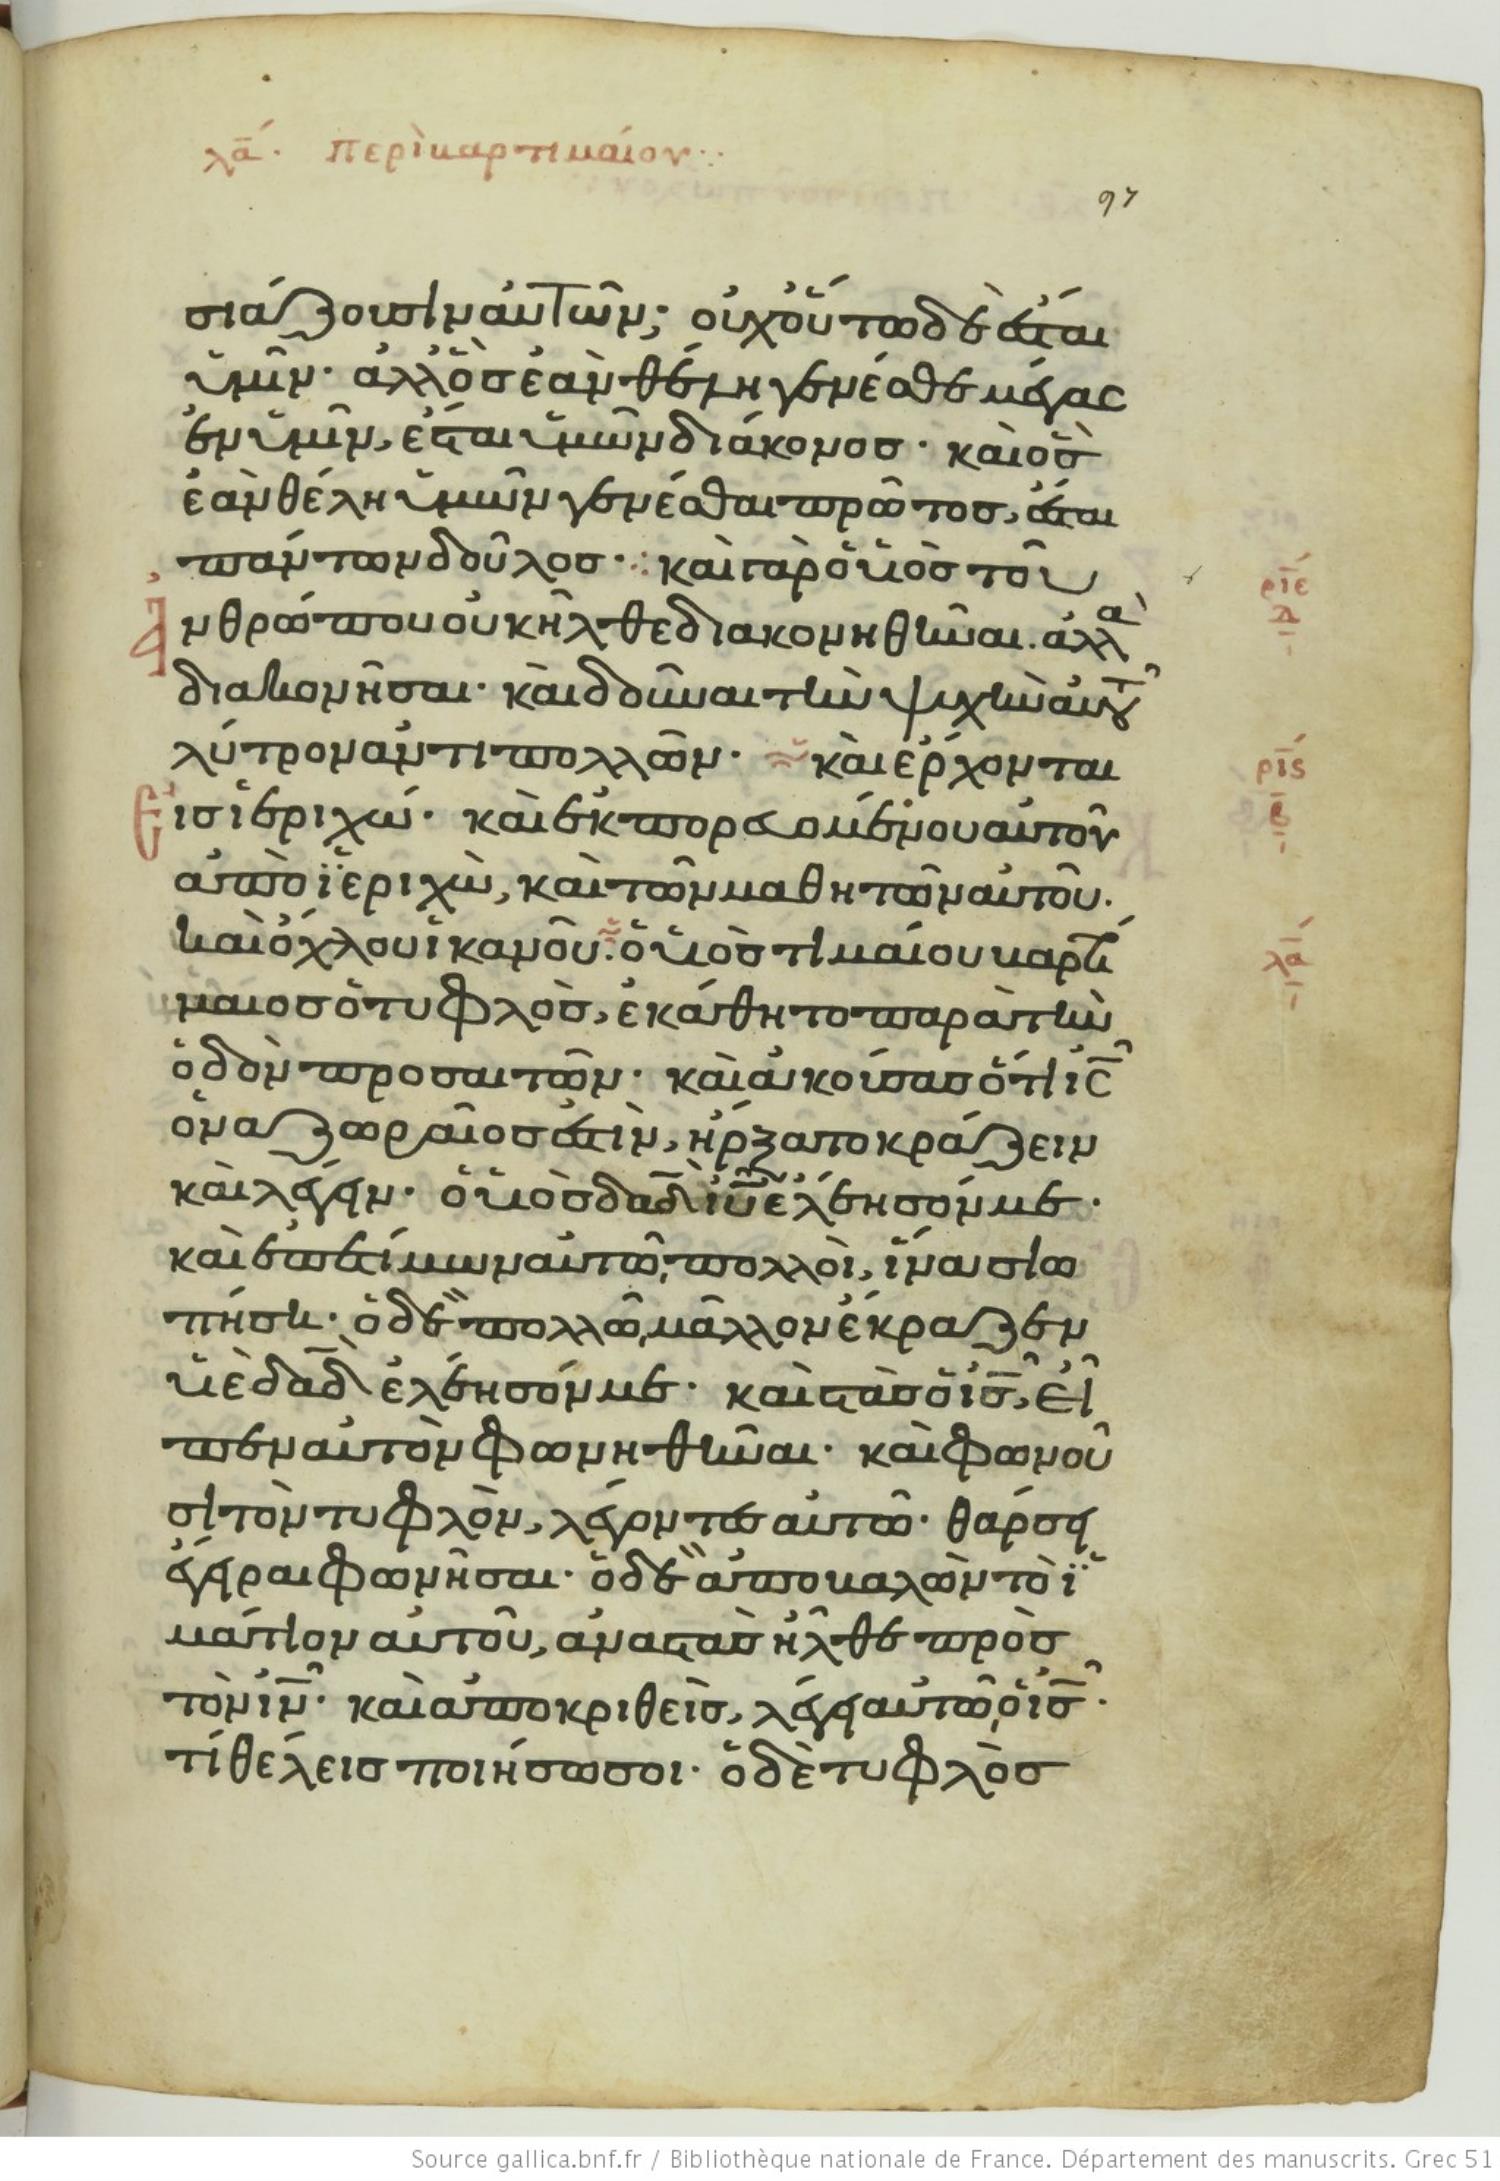 λα. περὶ βαρτιμαίου
97
σιάζουσιν αὐτῶν; οὐχ οὕτω δὲ ἔσται
ὑμῖν· ἀλλ' ὃς ἐὰν θέλη γενέσθαι μέγας
ἐν ὑμῖν, ἔσται ὑμῶν διάκονος· καὶ ὃς
ἐὰν θέλη ὑμῶν γενέσθαι πρῶτος, ἔσται
πάντων δοῦλος· καὶ γὰρ ὁ υἱὸς τοῦ
ἀνθρώπου οὐκ ἦλθε διακονηθῆναι. ἀλλὰ
διακονῆσαι· καὶ δοῦναι τὴν ψυχὴν αὐτοῦ
λύτρον ἀντι πολλῶν· καὶ ἔρχονται
εἰς ἱεριχώ· καὶ ἐκπορευομένου αὐτοῦ
ἀπὸ ἱεριχὼ, καὶ τῶν μαθητῶν αὐτοῦ·
καὶ ὄχλου ἱκανοῦ· ὁ υἱὸς τιμαίου βαρτι
μαιος ὁ τυφλὸς, ἐκάθητο παρὰ τὴν
ὁδὸν προσαιτῶν· καὶ ἀκούσας ὅτι ις
ὁ ναζωραῖος ἐστὶν, ἤρξατο κράζειν
καὶ λέγειν· ὁ υἱὸς δαδ ιυ ἐλέησόν με·
καὶ ἐπετίμων αὐτῶ πολλοὶ, ἵνα σιω
πήση· ὁ δὲ πολλῶ μᾶλλον ἔκραζεν
υἱὲ δαδ ἐλέησόν με· καὶ στὰς ὁ ις, εἶ
πεν αὐτὸν φωνηθῆναι· καὶ φωνοῦ
σι τὸν τυφλὸν, λέγοντες αὐτῶ· θάρσει
ἔγειραι φωνῆσαι· ὁ δὲ ἀποβαλὼν τὸ ἱ
μάτιον αὐτοῦ, ἀναστὰς ἦλθε πρὸς
τὸν ιν· καὶ ἀποκριθεὶς, λέγει αὐτῶ ὁ ις·
τί θέλεις ποιήσω σοι· ὁ δὲ τυφλὸς
ριε
δ
ρις
β
λα
Source gallica.bnf.fr / Bibliothèque nationale de France. Département des manuscrits. Grec 51